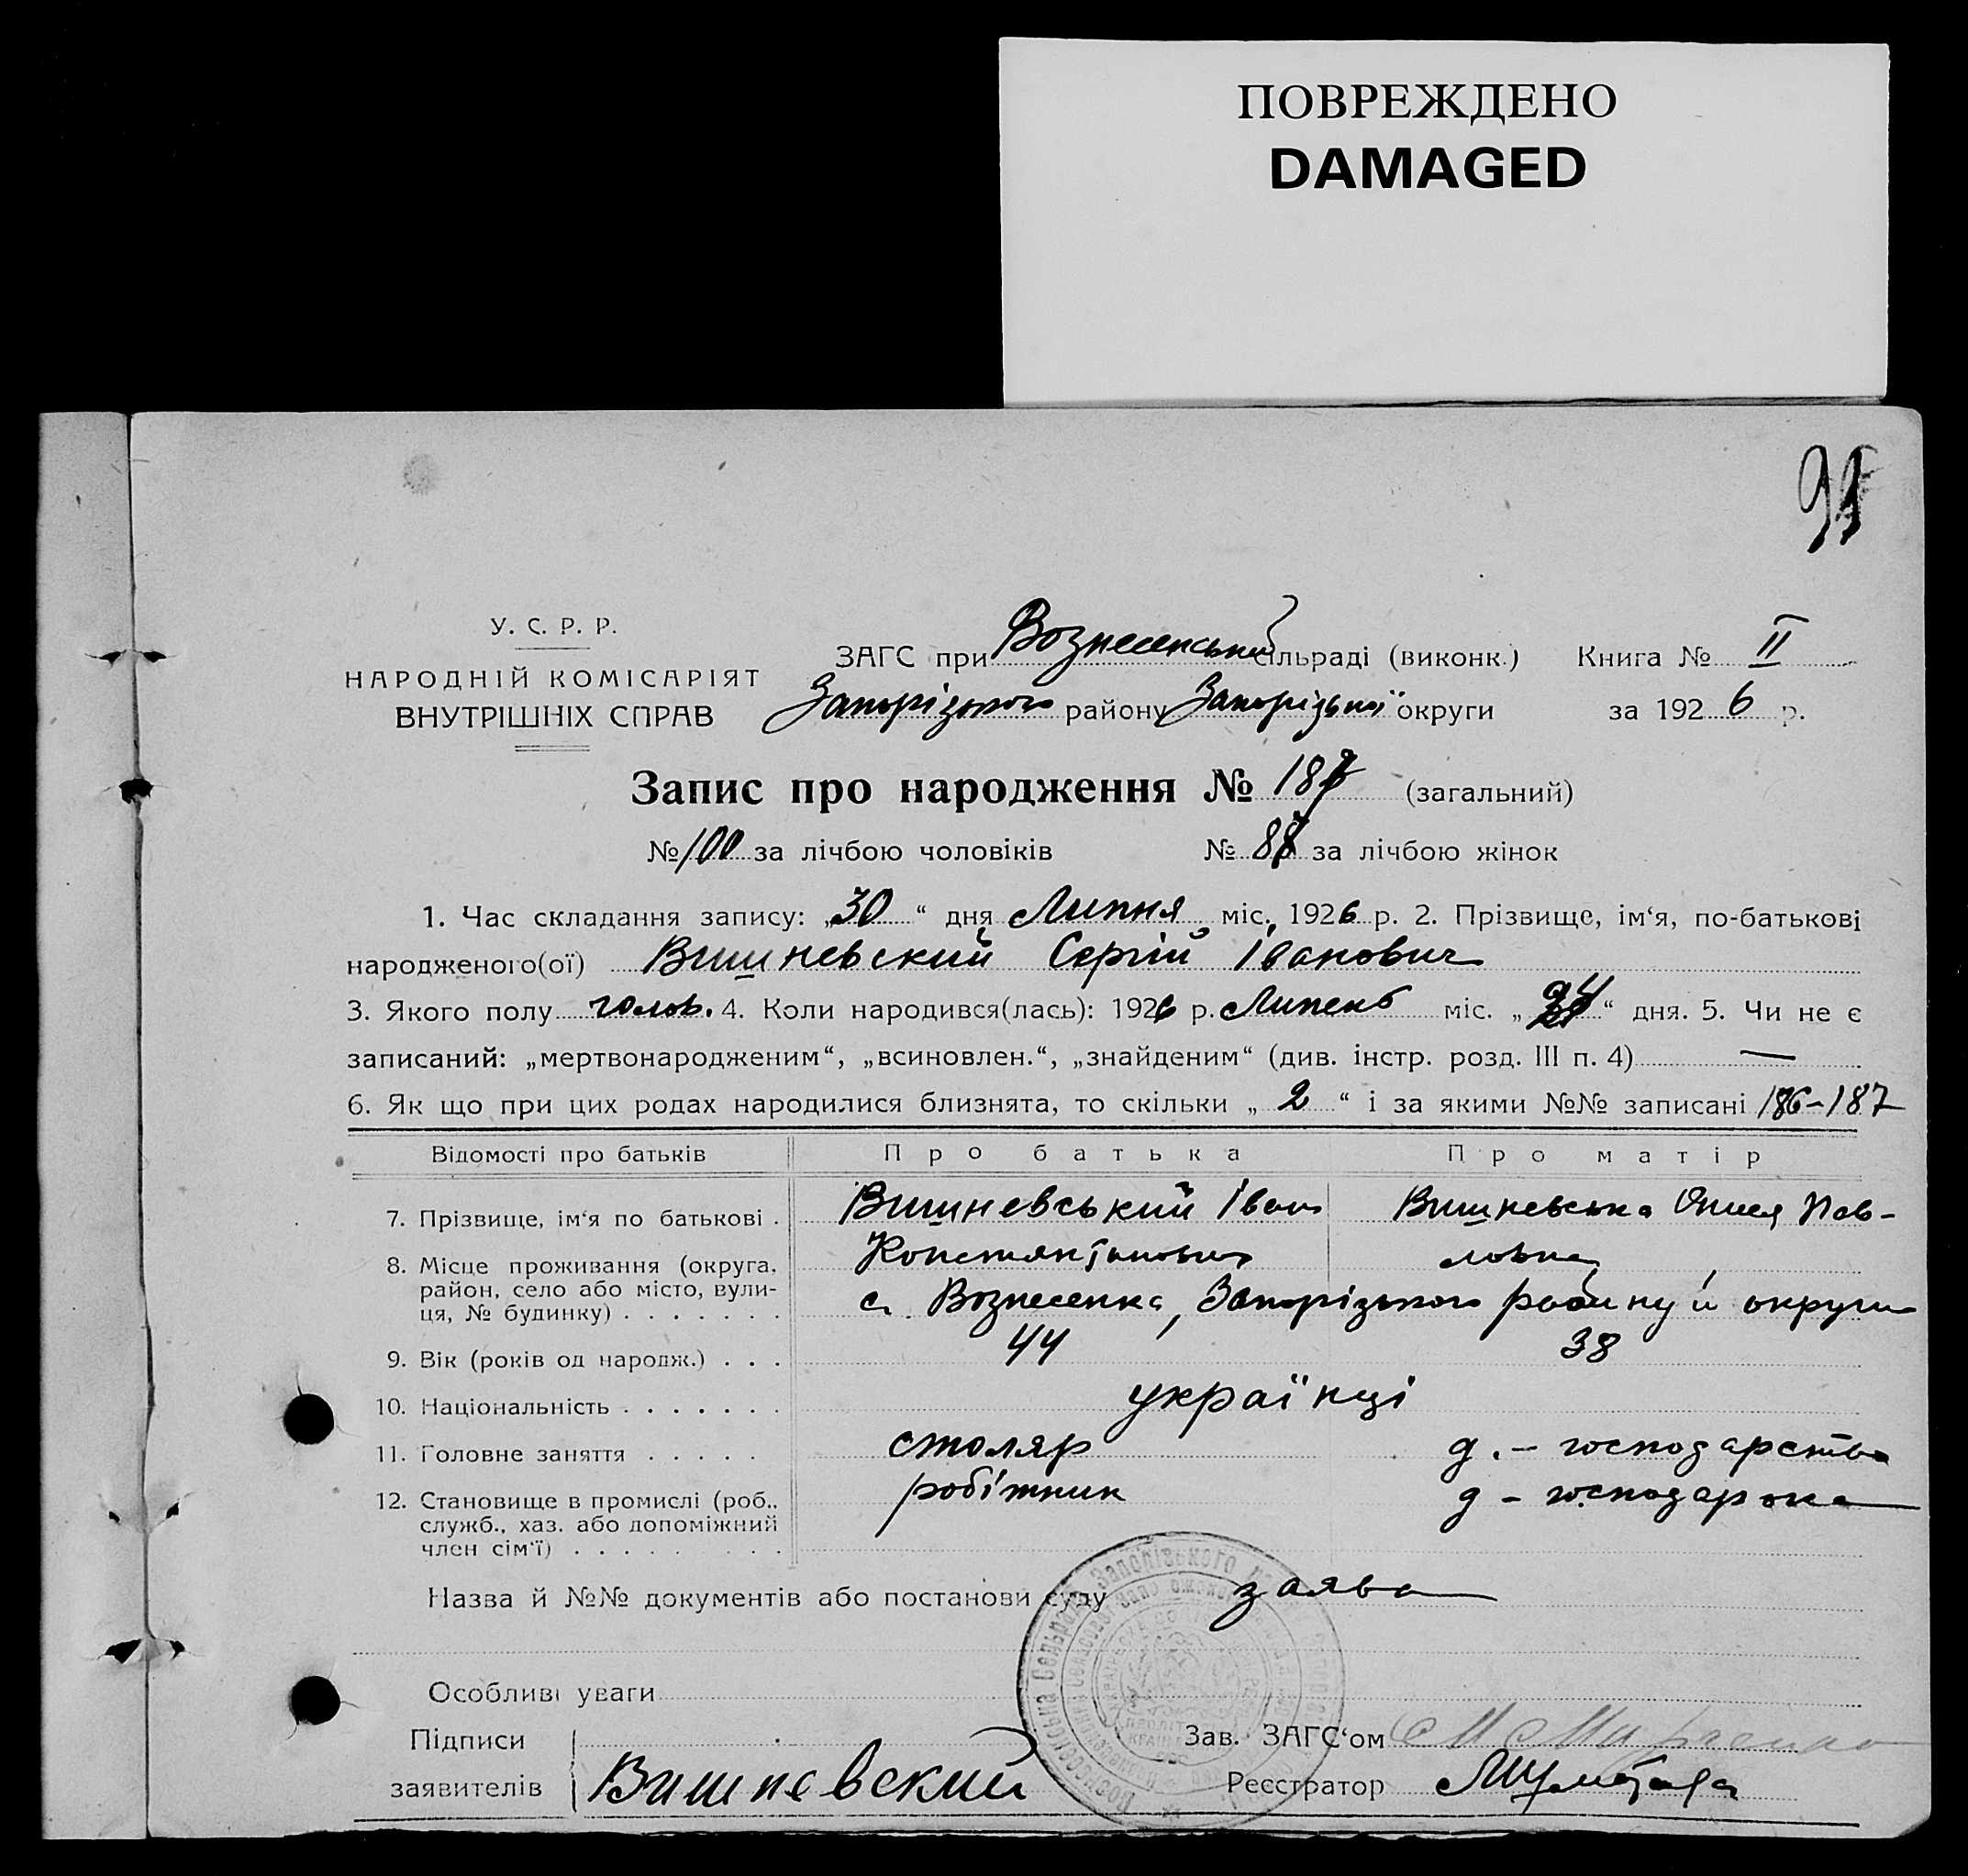 ПОВРЕЖДЕНО
DAMAGED
У. С. Р. Р.
НАРОДНІЙ КОМІСАРІЯТ
ВНУТРІШНІХ СПРАВ
ЗАГС при Вознесенській сільраді (виконк.) Книга № II
Запорізького району Запорізької округи за 1926 р.
Запис про народження № 187 (загальний)
№ 100 за лічбою чоловіків № за лічбою жінок
1. Час складання запису: „30“ дня Липня міс. 1926 р. 2. Прізвище, ім‘я, по-батькові
народженого(ої) Вишневский Сергій Іванович
3. Якого полу чолов. 4. Коли народився(лась): 1926 р. Липень міс. „ “ дня. 5. Чи не є
записаний: „мертвонародженим“, „всиновлен.“, „знайденим“ (див. інстр. розд. III п. 4) —
6. Як що при цих родах народилися близнята, то скільки „2“ і за якими №№ записані 186-187
Відомості про батьків Про батька Про матір
7. Прізвище, ім‘я по батькові . Вишневський Іван Вишневська Пав-
Константинович ловна
8. Місце проживання (округа, район, село або місто, вулиця, № будинку) . . . . . . . с. Вознесенка, Запорізького району й округи
9. Вік (років од народж.) . . . 44 38
10. Національність . . . . . . . українці
11. Головне заняття . . . . . столяр д. - господарство
12. Становище в промислі (роб., робітник д - господарка
служб., хаз. або допоміжний
член сім‘ї) . . . . . . . . .
Назва й №№ документів або постанови суду заява
Особливі уваги
Підписи
заявителів Вишневский
Зав. ЗАГС‘ом
Реєстратор